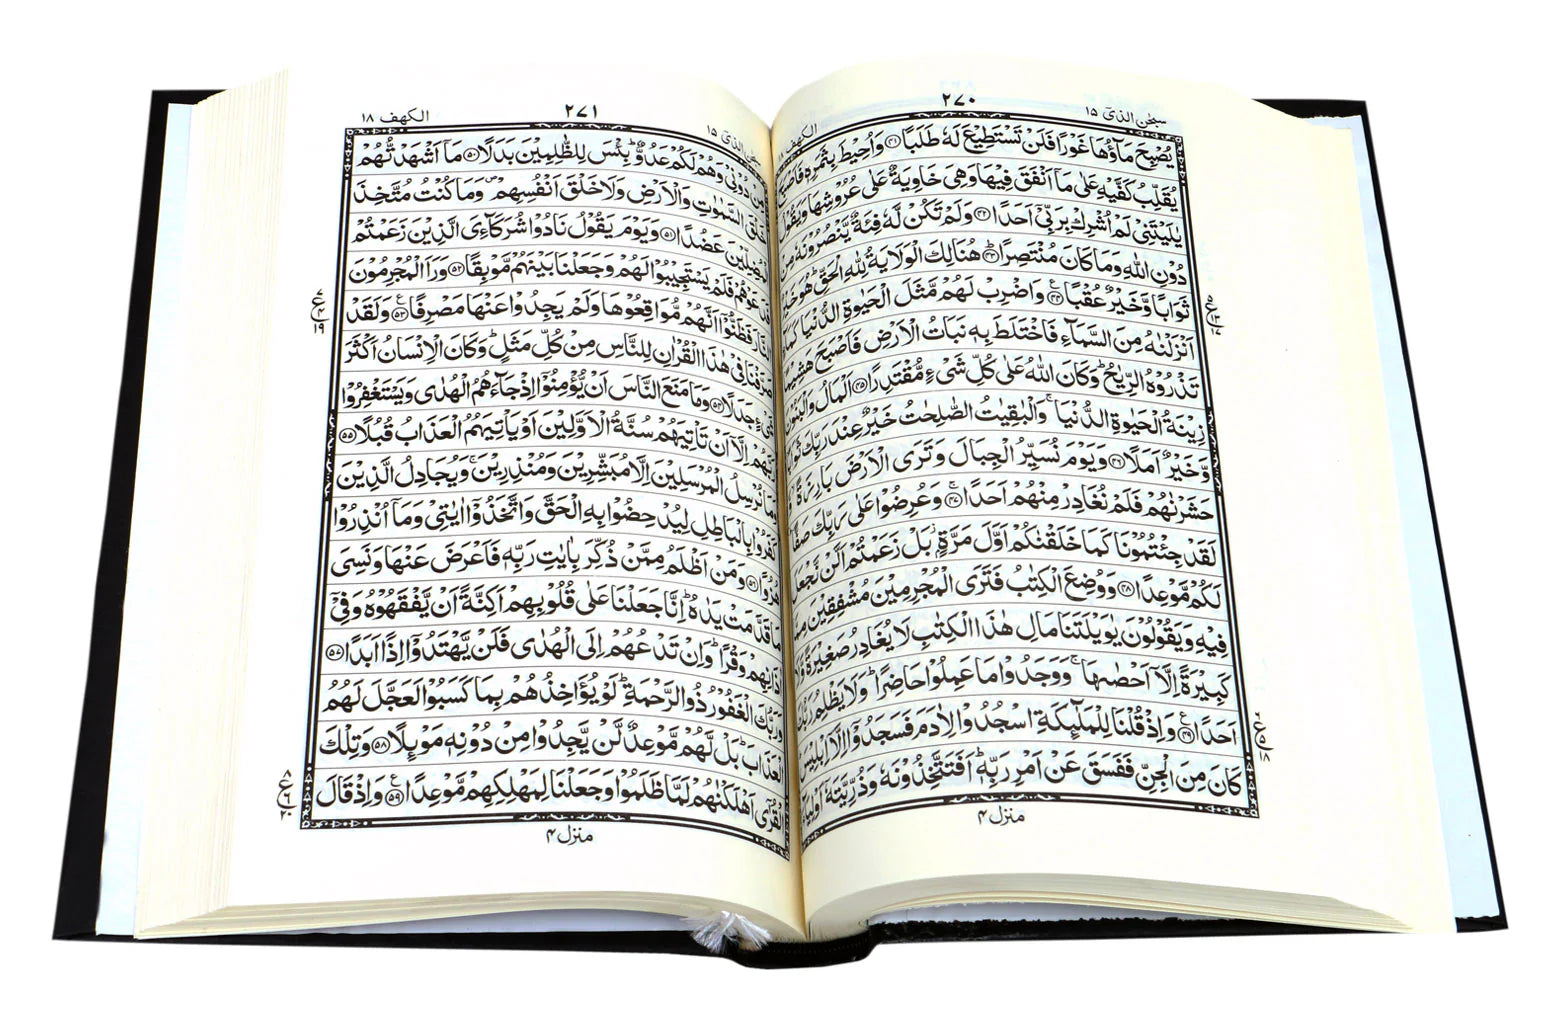 سبحٰن الذیٓ ١٥
٢٧٠
الكهف ١٨
يُصْبِحَ مَآؤُهَا غَوْرًا فَلَنْ تَسْتَطِيْعَ لَهٗ طَلَبًا ﴿٤١﴾ وَاُحِيْطَ بِثَمَرِهٖ فَاَصْبَحَ
يُقَلِّبُ كَفَّيْهِ عَلٰى مَآ اَنْفَقَ فِيْهَا وَهِيَ خَاوِيَةٌ عَلٰى عُرُوْشِهَا وَيَقُوْلُ
يٰلَيْتَنِيْ لَمْ اُشْرِكْ بِرَبِّيْٓ اَحَدًا ﴿٤٢﴾ وَلَمْ تَكُنْ لَّهٗ فِئَةٌ يَّنْصُرُوْنَهٗ مِنْ
دُوْنِ اللّٰهِ وَمَا كَانَ مُنْتَصِرًا ﴿٤٣﴾ هُنَالِكَ الْوَلَايَةُ لِلّٰهِ الْحَقِّ ؕ هُوَ خَيْرٌ
ثَوَابًا وَّخَيْرٌ عُقْبًا ﴿٤٤﴾ وَاضْرِبْ لَهُمْ مَّثَلَ الْحَيٰوةِ الدُّنْيَا كَمَآءٍ
اَنْزَلْنٰهُ مِنَ السَّمَآءِ فَاخْتَلَطَ بِهٖ نَبَاتُ الْاَرْضِ فَاَصْبَحَ هَشِيْمًا
تَذْرُوْهُ الرِّيٰحُ ؕ وَكَانَ اللّٰهُ عَلٰى كُلِّ شَيْءٍ مُّقْتَدِرًا ﴿٤٥﴾ اَلْمَالُ وَالْبَنُوْنَ
زِيْنَةُ الْحَيٰوةِ الدُّنْيَا ۚ وَالْبٰقِيٰتُ الصّٰلِحٰتُ خَيْرٌ عِنْدَ رَبِّكَ ثَوَابًا
وَّخَيْرٌ اَمَلًا ﴿٤٦﴾ وَيَوْمَ نُسَيِّرُ الْجِبَالَ وَتَرَى الْاَرْضَ بَارِزَةً ۙ وَّ
حَشَرْنٰهُمْ فَلَمْ نُغَادِرْ مِنْهُمْ اَحَدًا ﴿٤٧﴾ وَعُرِضُوْا عَلٰى رَبِّكَ صَفًّا
لَقَدْ جِئْتُمُوْنَا كَمَا خَلَقْنٰكُمْ اَوَّلَ مَرَّةٍۭ ؗ بَلْ زَعَمْتُمْ اَلَّنْ نَّجْعَلَ
لَكُمْ مَّوْعِدًا ﴿٤٨﴾ وَوُضِعَ الْكِتٰبُ فَتَرَى الْمُجْرِمِيْنَ مُشْفِقِيْنَ مِمَّا
فِيْهِ وَيَقُوْلُوْنَ يٰوَيْلَتَنَا مَالِ هٰذَا الْكِتٰبِ لَا يُغَادِرُ صَغِيْرَةً وَّلَا
كَبِيْرَةً اِلَّآ اَحْصٰىهَا ۚ وَوَجَدُوْا مَا عَمِلُوْا حَاضِرًا ؕ وَلَا يَظْلِمُ رَبُّكَ
اَحَدًا ﴿٤٩﴾ وَاِذْ قُلْنَا لِلْمَلٰٓئِكَةِ اسْجُدُوْا لِاٰدَمَ فَسَجَدُوْٓا اِلَّآ اِبْلِيْسَ ؕ
كَانَ مِنَ الْجِنِّ فَفَسَقَ عَنْ اَمْرِ رَبِّهٖ ؕ اَفَتَتَّخِذُوْنَهٗ وَذُرِّيَّتَهٗٓ اَوْلِيَآءَ
منزل ٤
سبحٰن الذیٓ ١٥
٢٧١
الكهف ١٨
مِنْ دُوْنِيْ وَهُمْ لَكُمْ عَدُوٌّ ؕ بِئْسَ لِلظّٰلِمِيْنَ بَدَلًا ﴿٥٠﴾ مَآ اَشْهَدْتُّهُمْ
خَلْقَ السَّمٰوٰتِ وَالْاَرْضِ وَلَا خَلْقَ اَنْفُسِهِمْ ۪ وَمَا كُنْتُ مُتَّخِذَ
الْمُضِلِّيْنَ عَضُدًا ﴿٥١﴾ وَيَوْمَ يَقُوْلُ نَادُوْا شُرَكَآءِيَ الَّذِيْنَ زَعَمْتُمْ
فَدَعَوْهُمْ فَلَمْ يَسْتَجِيْبُوْا لَهُمْ وَجَعَلْنَا بَيْنَهُمْ مَّوْبِقًا ﴿٥٢﴾ وَرَاَ الْمُجْرِمُوْنَ
النَّارَ فَظَنُّوْٓا اَنَّهُمْ مُّوَاقِعُوْهَا وَلَمْ يَجِدُوْا عَنْهَا مَصْرِفًا ﴿٥٣﴾ وَلَقَدْ
صَرَّفْنَا فِيْ هٰذَا الْقُرْاٰنِ لِلنَّاسِ مِنْ كُلِّ مَثَلٍ ؕ وَكَانَ الْاِنْسَانُ اَكْثَرَ
شَيْءٍ جَدَلًا ﴿٥٤﴾ وَمَا مَنَعَ النَّاسَ اَنْ يُّؤْمِنُوْٓا اِذْ جَآءَهُمُ الْهُدٰى وَيَسْتَغْفِرُوْا
رَبَّهُمْ اِلَّآ اَنْ تَاْتِيَهُمْ سُنَّةُ الْاَوَّلِيْنَ اَوْ يَاْتِيَهُمُ الْعَذَابُ قُبُلًا ﴿٥٥﴾
وَمَا نُرْسِلُ الْمُرْسَلِيْنَ اِلَّا مُبَشِّرِيْنَ وَمُنْذِرِيْنَ ۚ وَيُجَادِلُ الَّذِيْنَ
كَفَرُوْا بِالْبَاطِلِ لِيُدْحِضُوْا بِهِ الْحَقَّ وَاتَّخَذُوْٓا اٰيٰتِيْ وَمَآ اُنْذِرُوْا
هُزُوًا ﴿٥٦﴾ وَمَنْ اَظْلَمُ مِمَّنْ ذُكِّرَ بِاٰيٰتِ رَبِّهٖ فَاَعْرَضَ عَنْهَا وَنَسِيَ
مَا قَدَّمَتْ يَدٰهُ ؕ اِنَّا جَعَلْنَا عَلٰى قُلُوْبِهِمْ اَكِنَّةً اَنْ يَّفْقَهُوْهُ وَفِيْٓ
اٰذَانِهِمْ وَقْرًا ؕ وَاِنْ تَدْعُهُمْ اِلَى الْهُدٰى فَلَنْ يَّهْتَدُوْٓا اِذًا اَبَدًا ﴿٥٧﴾
وَرَبُّكَ الْغَفُوْرُ ذُو الرَّحْمَةِ ؕ لَوْ يُؤَاخِذُهُمْ بِمَا كَسَبُوْا لَعَجَّلَ لَهُمُ
الْعَذَابَ ؕ بَلْ لَّهُمْ مَّوْعِدٌ لَّنْ يَّجِدُوْا مِنْ دُوْنِهٖ مَوْئِلًا ﴿٥٨﴾ وَتِلْكَ
الْقُرٰٓى اَهْلَكْنٰهُمْ لَمَّا ظَلَمُوْا وَجَعَلْنَا لِمَهْلِكِهِمْ مَّوْعِدًا ﴿٥٩﴾ وَاِذْ قَالَ
منزل ٤